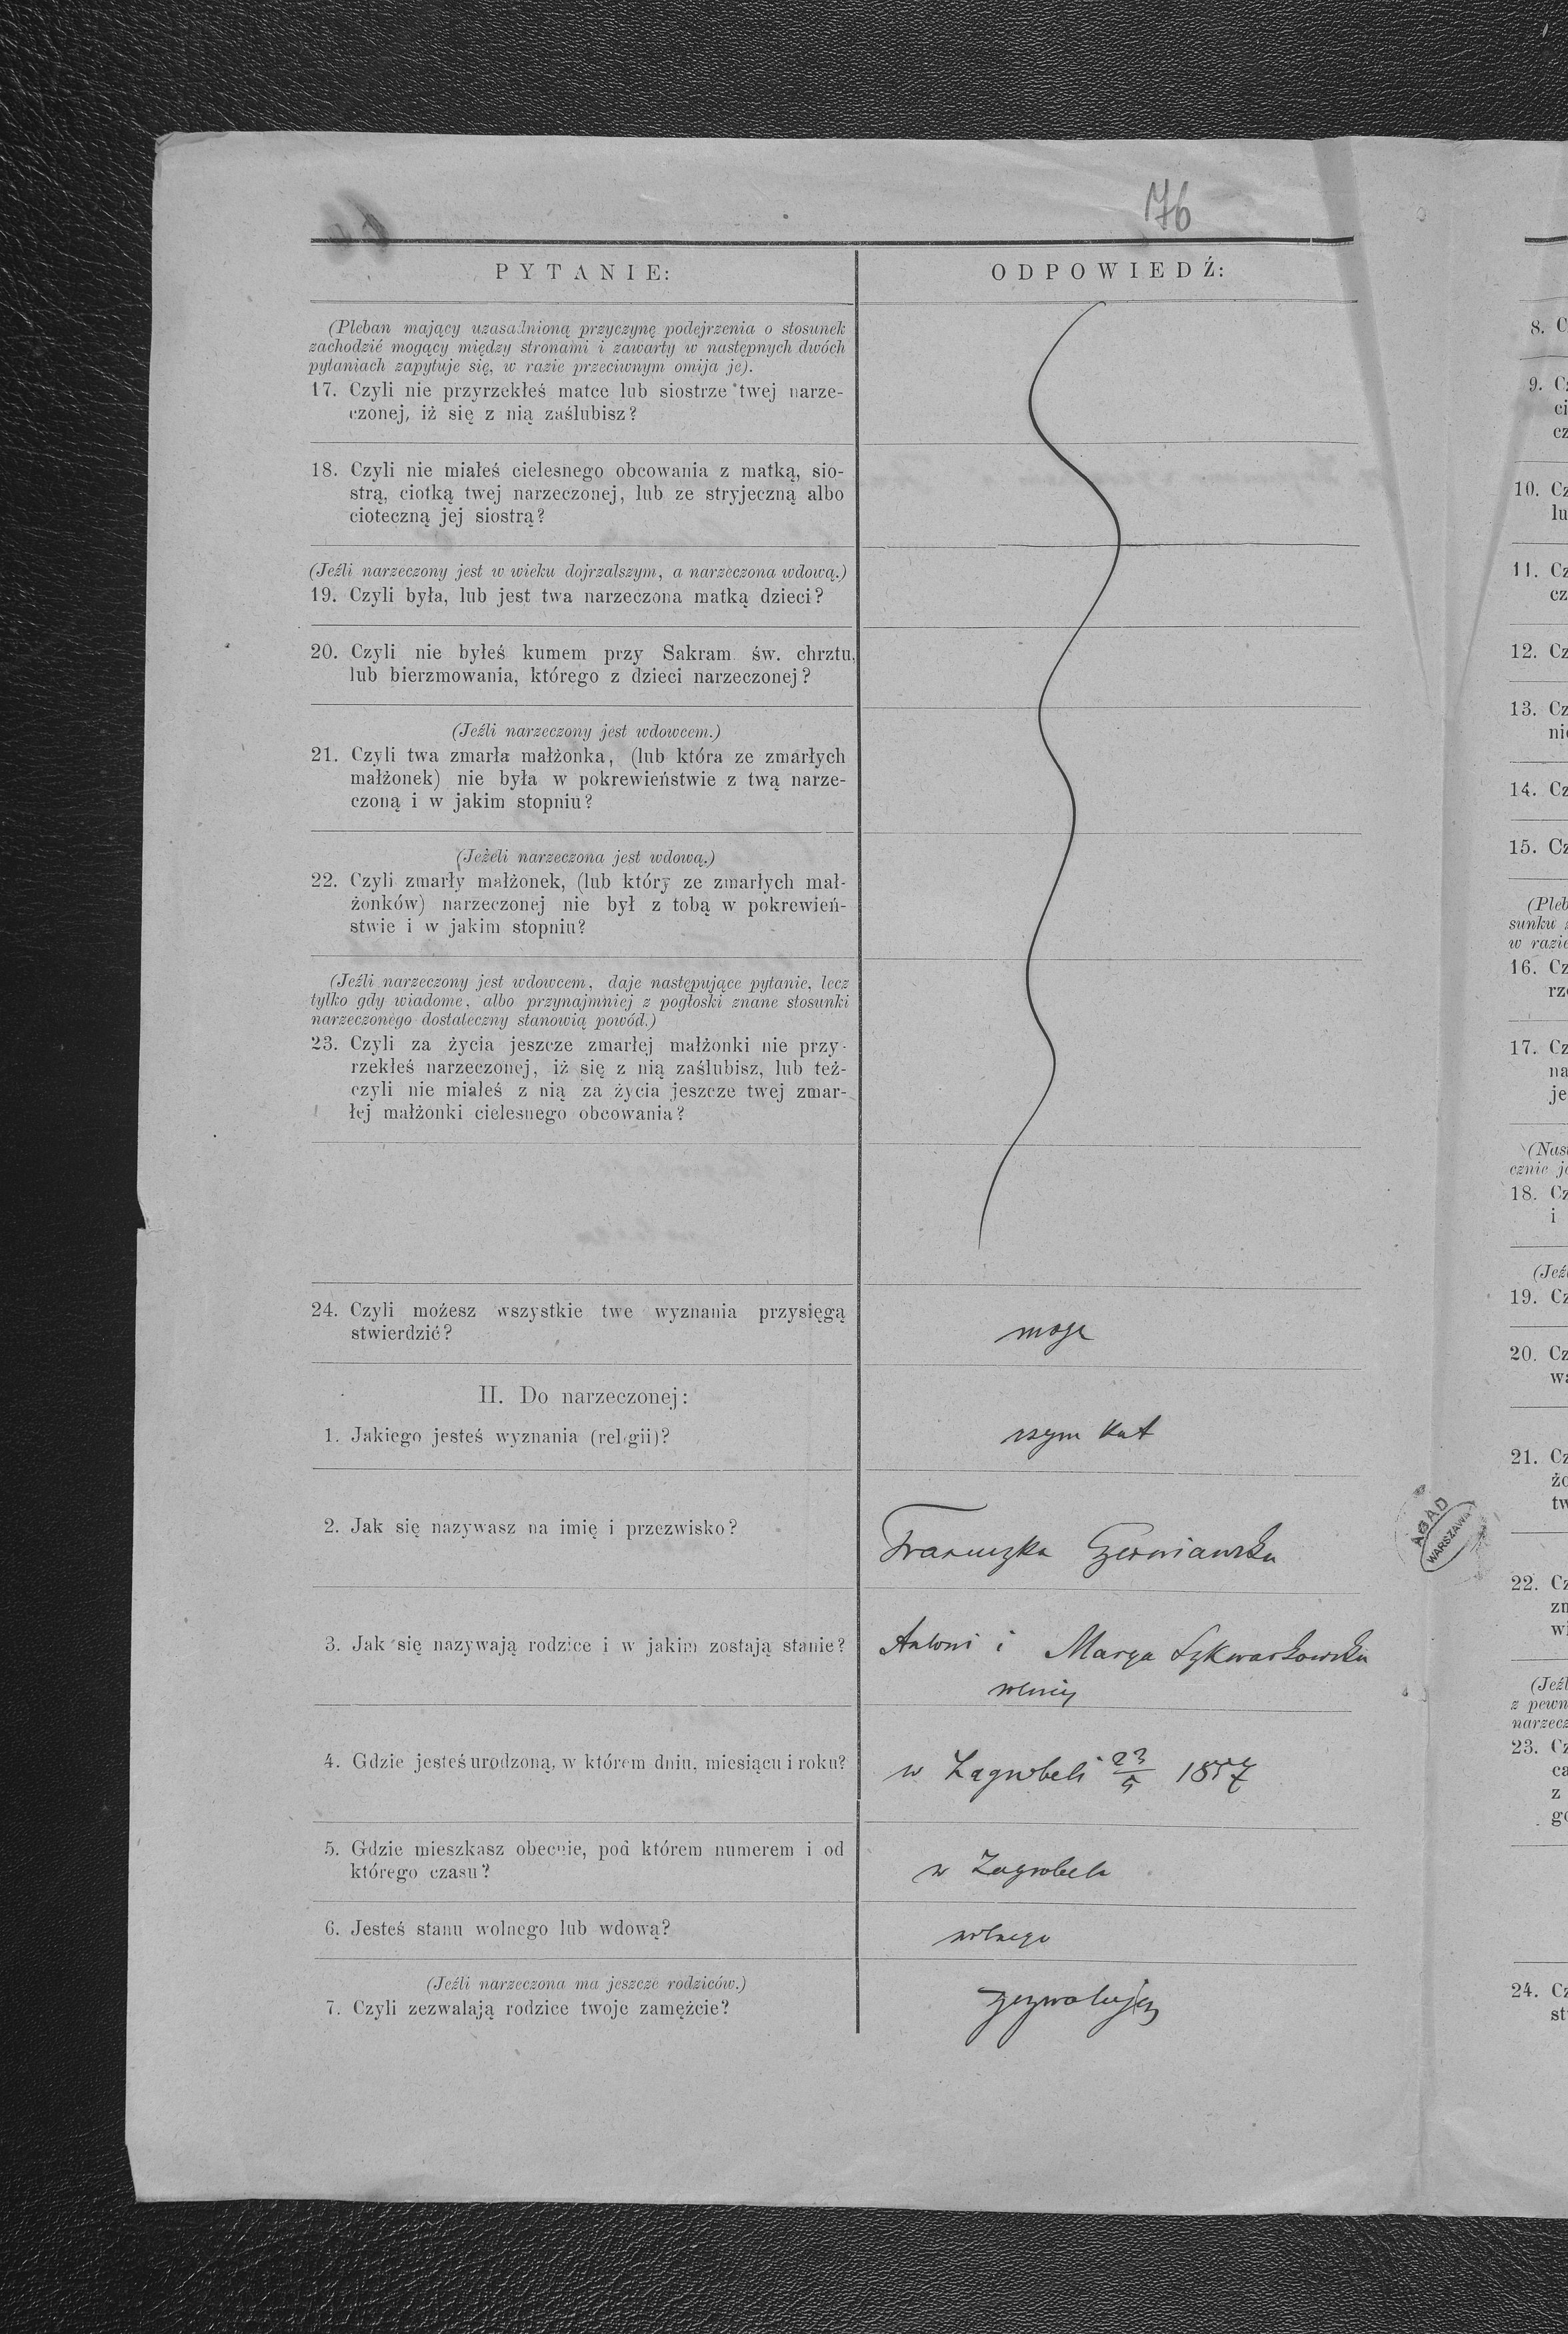 176
PYTANIE:
ODPOWIEDŹ:
(Pleban mający uzasadnioną przyczynę podejrzenia o stosunek
zachodzić mogący między stronami i zawarty w następnych dwóch
pytaniach zapytuje się, w razie przeciwnym omija je).
17. Czyli nie przyrzekłeś matce lub siostrze twej narze-
czonej, iż się z nią zaślubisz?
18. Czyli nie miałeś cielesnego obcowania z matką, sio-
strą, ciotką twej narzeczonej, lub ze stryjeczną albo
cioteczną jej siostrą?
(Jeźli narzeczony jest w wieku dojrzalszym, a narzeczona wdową.)
19. Czyli była, lub jest twa narzeczona matką dzieci?
20. Czyli nie byłeś kumem przy Sakram. św. chrztu,
lub bierzmowania, którego z dzieci narzeczonej?
(Jeźli narzeczony jest wdowcem.)
21. Czyli twa zmarła małżonka, (lub która ze zmarłych
małżonek) nie była w pokrewieństwie z twą narze-
czoną i w jakim stopniu?
(Jeżeli narzeczona jest wdową.)
22. Czyli zmarły małżonek, (lub który ze zmarłych mał-
żonków) narzeczonej nie był z tobą w pokrewień-
stwie i w jakim stopniu?
(Jeźli narzeczony jest wdowcem, daje następujące pytanie, lecz
tylko gdy wiadome, albo przynajmniej z pogłoski znane stosunki
narzeczonego dostateczny stanowią powód.)
23. Czyli za życia jeszcze zmarłej małżonki nie przy-
rzekłeś narzeczonej, iż się z nią zaślubisz, lub też
czyli nie miałeś z nią za życia jeszcze twej zmar-
łej małżonki cielesnego obcowania?
24. Czyli możesz wszystkie twe wyznania przysięgą
stwierdzić?
mogę
II. Do narzeczonej:
1. Jakiego jesteś wyznania (religii)?
rzym kat
2. Jak się nazywasz na imię i przezwisko?
Franciszka Czerniawska
3. Jak się nazywają rodzice i w jakim zostają stanie?
Antoni i Marya
4. Gdzie jesteś urodzoną, w którem dniu, miesiącu i roku?
w Zagrobeli 23/5 1857
5. Gdzie mieszkasz obecnie, pod którem numerem i od
którego czasu?
w Zagrobeli
6. Jesteś stanu wolnego lub wdową?
wolnego
(Jeźli narzeczona ma jeszcze rodziców.)
7. Czyli zezwalają rodzice twoje zamężcie?
zezwalają
AGAD
WARSZAWA
8. C
9. Cz
ci
cz
10. Cz
lu
11. Cz
cz
12. Cz
13. Cz
nie
14. Cz
15. Cz
(Pleb
sunku
w razie
16. Cz
rze
17. Cz
na
je
(Nas
cznie je
18. Cz
i
(Jeź
19. Cz
20. Cz
wa
21. Cz
żo
tw
22. Cz
zm
wi
(Jeźl
z pewn
narzecz
23. Cz
ca
z
go
24. Cz
st